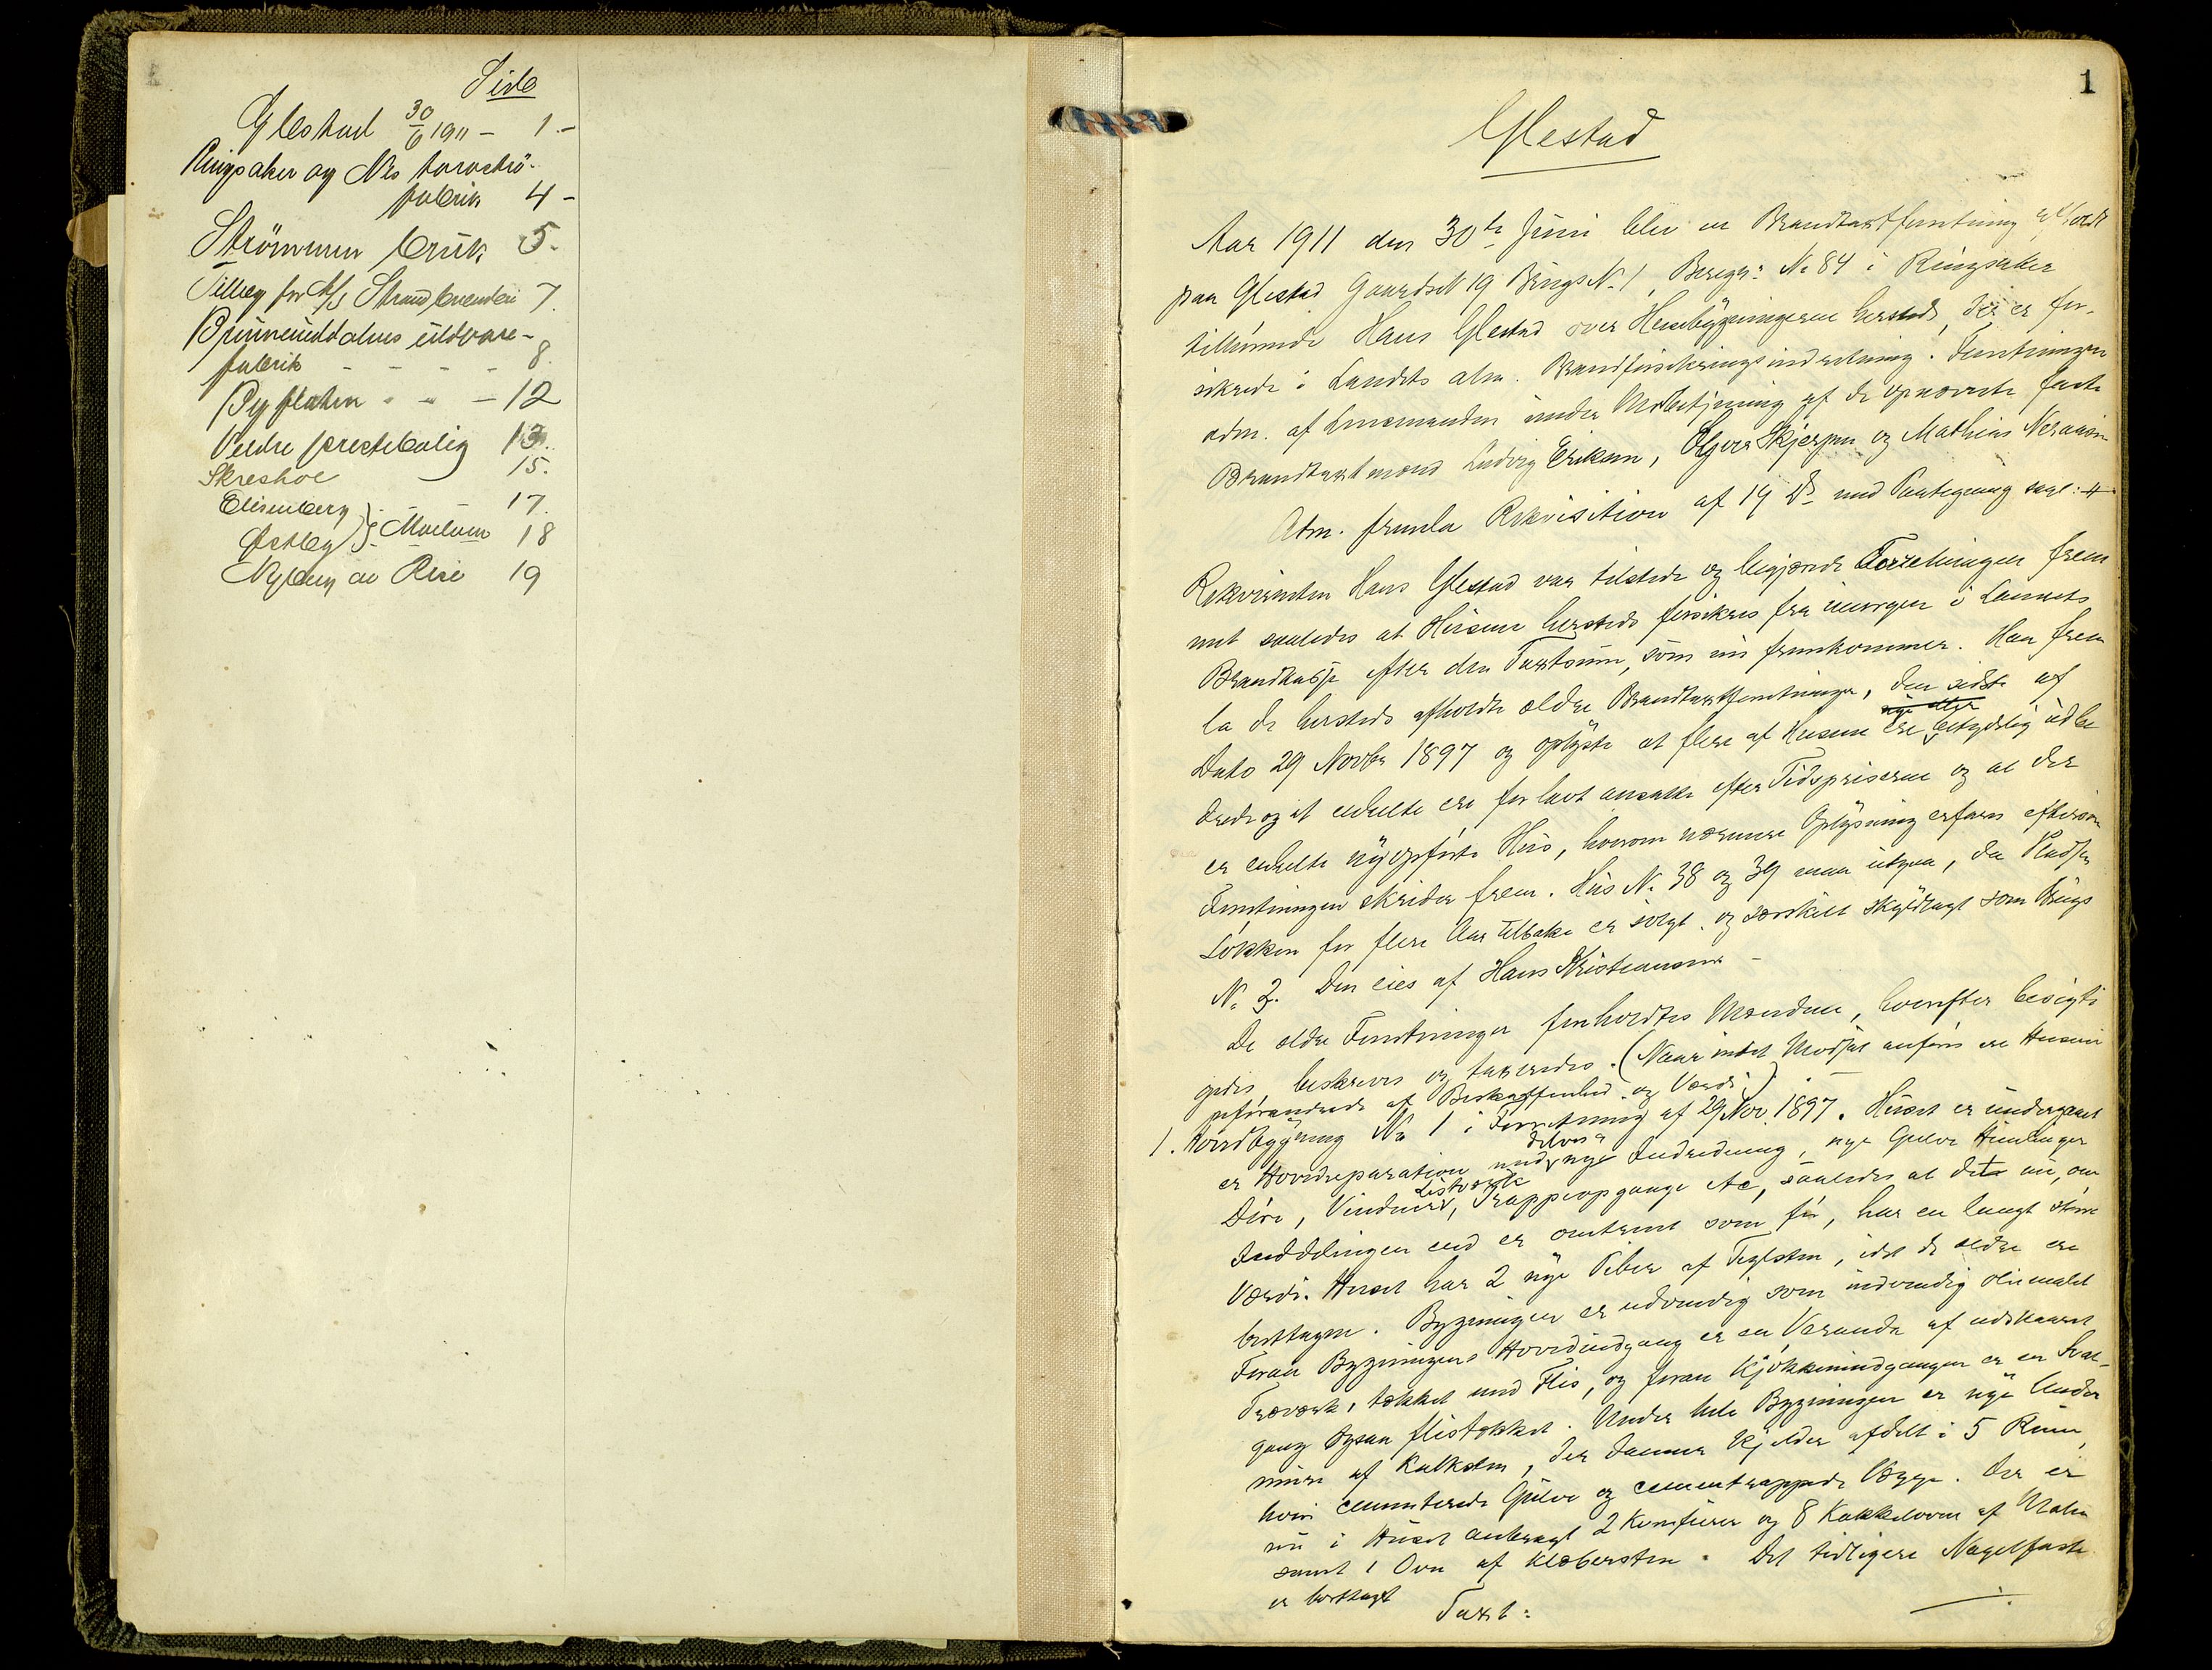 Side
Glestad 30/6 1911 - 1.-
Ringsaker og Nes torvströ-
fabrik 4 -
Strömmen bruk 5.
Tillæg for A/S Strand brenderi 7.
Brumunddalens uldvare-
fabrik - - - - 8.
Byflaten - - - 12
Veldre prestebolig 13.
Skreshol 15.
Elisenberg 17.
Østby } i Moelven 18
Nyberg av Rise 19
1
Glestad
Aar 1911 den 30te Juni blev en Brandtaxtforretning afholdt
paa Glestad Gaards N 19 Brugs N. 1, Beregn: No 84 i Ringsaker
tilhørende Hans Glestad over Husebygningerne hersteds, der er for-
sikrede i Landets alm. Brandforsikringsindretning. Forretningen
adm. af Lensmanden under Medbetjening af de opnævnte faste
Brandtaxtmænd Ludvig Eriksen, Elgvar Skjerpen og Mathias
Adm. fremla Rekvisition af 19 Ds med Paategning
Rekvirenten Hans Glestad var tilstede og begjærede Forretningen frem
met saaledes at Husene hersteds forsikres fra imorgen i Landets
Brandkasse efter den Taxtsum, som nu fremkommer. Han frem
la de hersteds afholdte ældre Brandtaxtforretninger, den sidste af
Dato 29 Novbr 1897 og oplyste at flere af Husene ere betydelig udbe
drede og at enkelte ere for lavt ansatte efter Tidspriserne og at der
er enkelte nyopførte Hus, hvorom nærmere Oplysning erfares eftersom
Forretningen skrider frem. Hus No 38 og 39 maa utgaa, da Pladsen
Løkken for flere Aar tilbake er solgt og særskilt skyldlagt som Brugs
No 2. Den eies af Hans Kristiansen -
De ældre Forretninger foreholdtes Mændene, hvorefter besigti
gedes, beskreves og taxeredes. (Naar intet Modsat anføres ere Husene
uforandrede af Beskaffenhed og Værdi.)
1. Hovedbygning No 1 i Forretning af 29 Nov. 1897. Huset er undergaaet
delvis
er Hovedreparation med nye Indredning, nye Gulve Himlinger
Listverk
Døre, Vinduer, Trappeopgange etc, saaledes at det nu, om
Inddelingen end er omtrent som før, har en langt større
Værdi. Huset har 2 nye Piber af Teglsten, idet de ældre ere
borttagne. Bygningen er udvendig som indvendig oliemalet
Foran Bygningens Hovedindgang er en Veranda af udskaaret
Træværk, tækket med Flis, og foran Kjøkkenindgangen er en Sval-
gang ogsaa flistækket. Under hele Bygningen er nye Under
mure af Kalksten, der danner Kjelder afdelt i 5 Rum,
hvori cementerede Gulve og cementrappede Vægge. Der er
nu i Huset anbragt 2 Komfurer og 8 Kakkelovne af Malm
samt 1 Ovn af Klæbersten. Det tidligere Nagelfaste
er borttagt
Taxt: